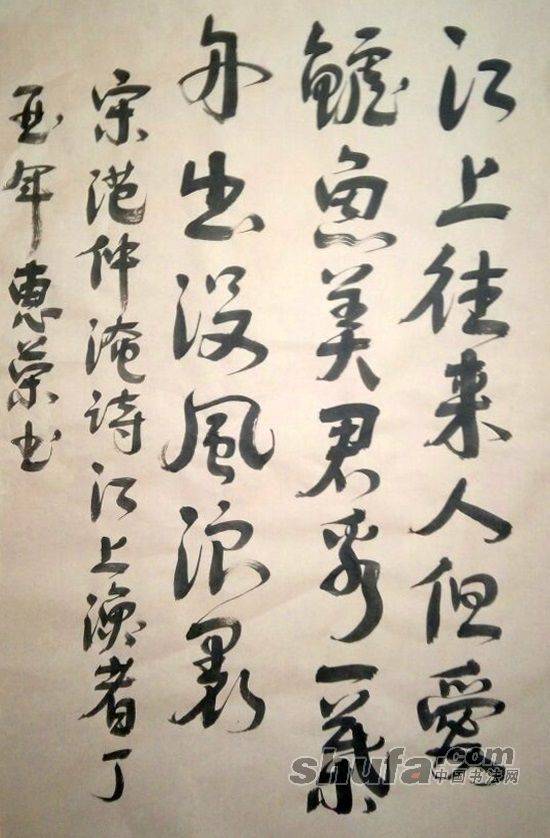 江上往来人但愛
鱸魚美君看一葉
舟出没風浪裏
宋范仲淹诗江上漁者丁
酉年惠荣书
shufa.com
中国书法网